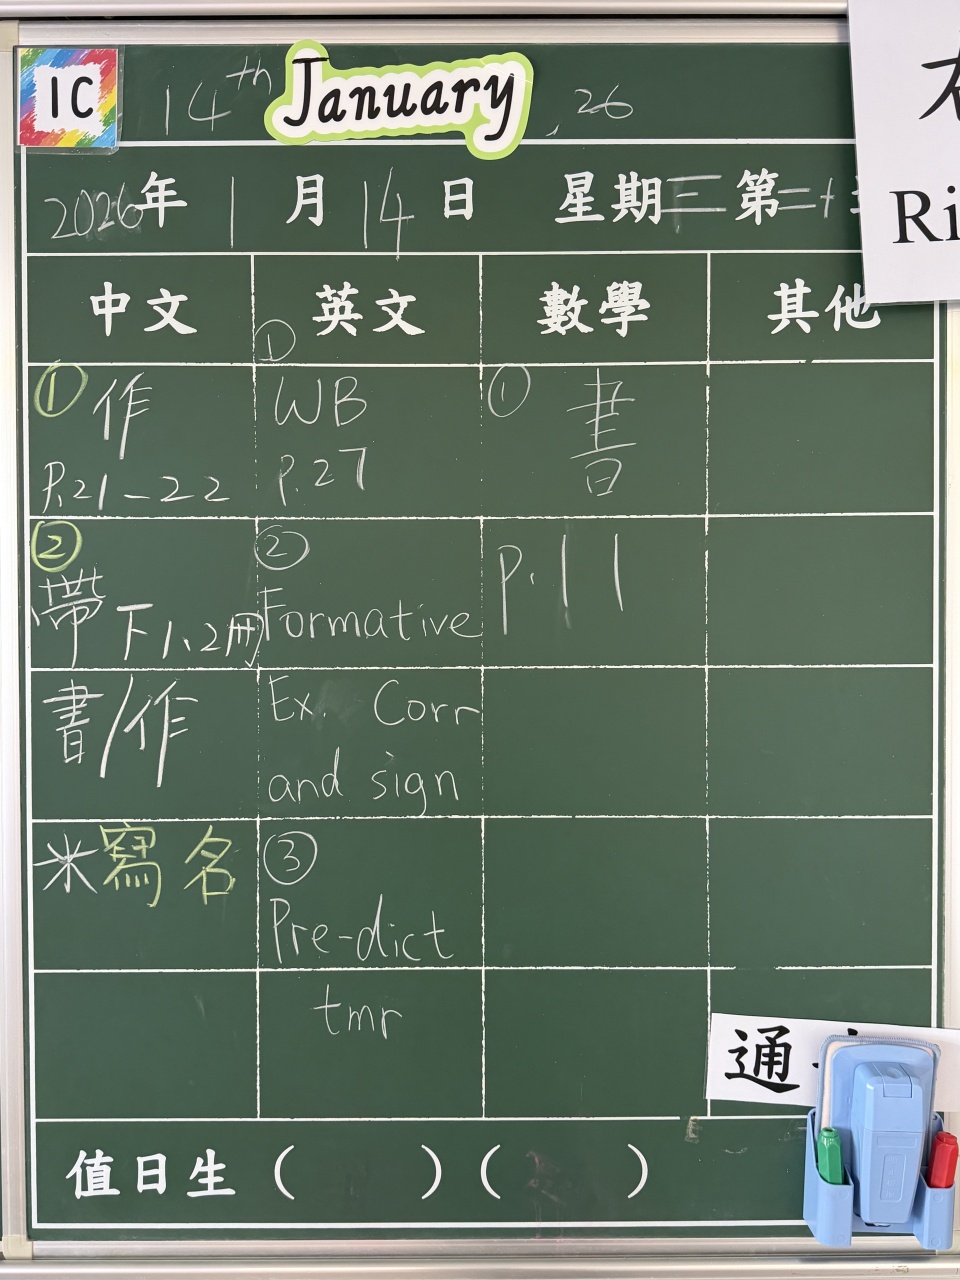 1C
14th January, 26
2026年 1月 14日 星期三 第二十
Ri
中文 英文 數學 其他
① 作
P.21-22
② 帶下1、2冊
書/作
米寫名
①
WB
P.27
②
Formative
Ex. Corr
and sign
③
Pre-dict
tmr
① 書
p.11
通
值日生 ( ) ( )